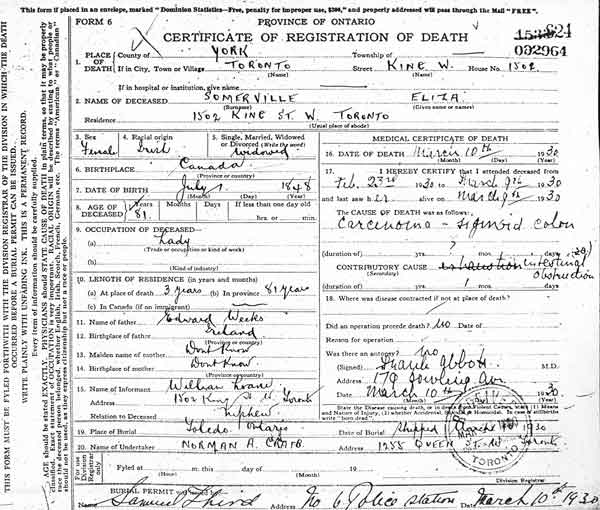 This form if placed in an envelope, marked "Dominion Statistics—Free, penalty for improper use, $300," and properly addressed will pass through the Mail "FREE".
FORM 6
PROVINCE OF ONTARIO
CERTIFICATE OF REGISTRATION OF DEATH
624
002964
1. PLACE OF DEATH
County of YORK Township of
If in City, Town or Village TORONTO Street KING W. House No. 1502
(Name) (Name)
If in hospital or institution, give name
2. NAME OF DECEASED SOMERVILLE ELIZA
(Surname) (Given name or names)
Residence 1502 KING ST. W. TORONTO
(Usual place of abode)
3. Sex Female
4. Racial origin Irish
5. Single, Married, Widowed or Divorced (Write the word) Widowed
6. BIRTHPLACE Canada
(Province or country)
7. DATE OF BIRTH July 1848
8. AGE OF DECEASED Years Months Days If less than one day old
81 hrs. or min.
9. OCCUPATION OF DECEASED—
(a) Lady
(Trade or occupation or kind of work)
(b)
(Kind of industry)
10. LENGTH OF RESIDENCE (in years and months)
(a) At place of death 3 years (b) In province 81 years
(c) In Canada (if an immigrant)
11. Name of father Edward Weeks
12. Birthplace of father Ireland
(Province or country)
13. Maiden name of mother Dont Know
14. Birthplace of mother Dont Know
(Province or country)
15. Name of Informant William
Address 1502 King St W. Toronto
Relation to Deceased Nephew
19. Place of Burial Toledo Ontario
20. Name of Undertaker NORMAN A. CRAIG
MEDICAL CERTIFICATE OF DEATH
16. DATE OF DEATH March 10th 1930
(Month) (Day) (Year)
17. I HEREBY CERTIFY that I attended deceased from
Feb. 23rd 1930 to March 9th 1930
and last saw er alive on March 9th 1930
The CAUSE OF DEATH was as follows:
Carcinoma - sigmoid colon
(duration of) ? yrs. mos. ds.
CONTRIBUTORY CAUSE intestinal obstruction
(Secondary)
(duration of) yrs. mos. ds.
18. Where was disease contracted if not at place of death?
Did an operation precede death? No Date of
Reason for operation
Was there an autopsy? no
(Signed) Abbott M.D.
Address 179 Cowling Av.
March 10th 1930
State the Disease causing death, or in deaths from Violent Causes, write (1) Means and Nature of Injury
Date of Burial Shipped March 10th 1930
Address 1255 QUEEN ST. W Toronto
TORONTO
For use Division Registrar Only
Fyled at this day of 19
Division Registrar
BURIAL PERMIT
Samuel Third Address No 6 Police Station March 10th 1930
(Name)
THIS FORM MUST BE FYLED FORTHWITH WITH THE DIVISION REGISTRAR OF THE DIVISION IN WHICH THE DEATH
OCCURRED BEFORE A BURIAL PERMIT CAN BE ISSUED.
WRITE PLAINLY WITH UNFADING INK. THIS IS A PERMANENT RECORD.
Every item of information should be carefully supplied.
AGE should be stated EXACTLY. PHYSICIANS should state CAUSE OF DEATH in plain terms, so that it may be properly
classified. Exact statement of OCCUPATION is very important. RACIAL ORIGIN will be described by stating to what people or
race the deceased person belonged, whether English, Irish, Scotch, French, German, etc. The terms "American" or "Canadian"
should not be used, as they express citizenship but not a race or people.